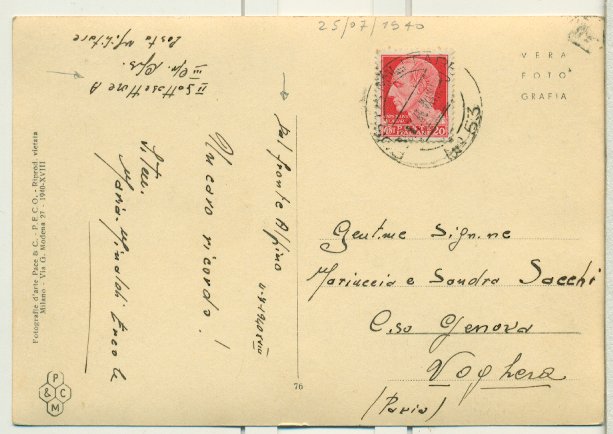 25/07/1940
II Sottosettore A
III
Posta Militare
VERA
FOTO
GRAFIA
20
53
Dal fronte Alpino
Un caro ricordo!
Maria Rinaldi Ercole
Gent.me Sig.ne
Mariuccia e Sandra Sacchi
C.so Genova
Voghera
(Pavia)
Fotografie d'arte Pace & C. - P.E.C.O. - Riprod. vietata
Milano - Via G. Modena 27 - 1940-XVIII
P
& C
M
76